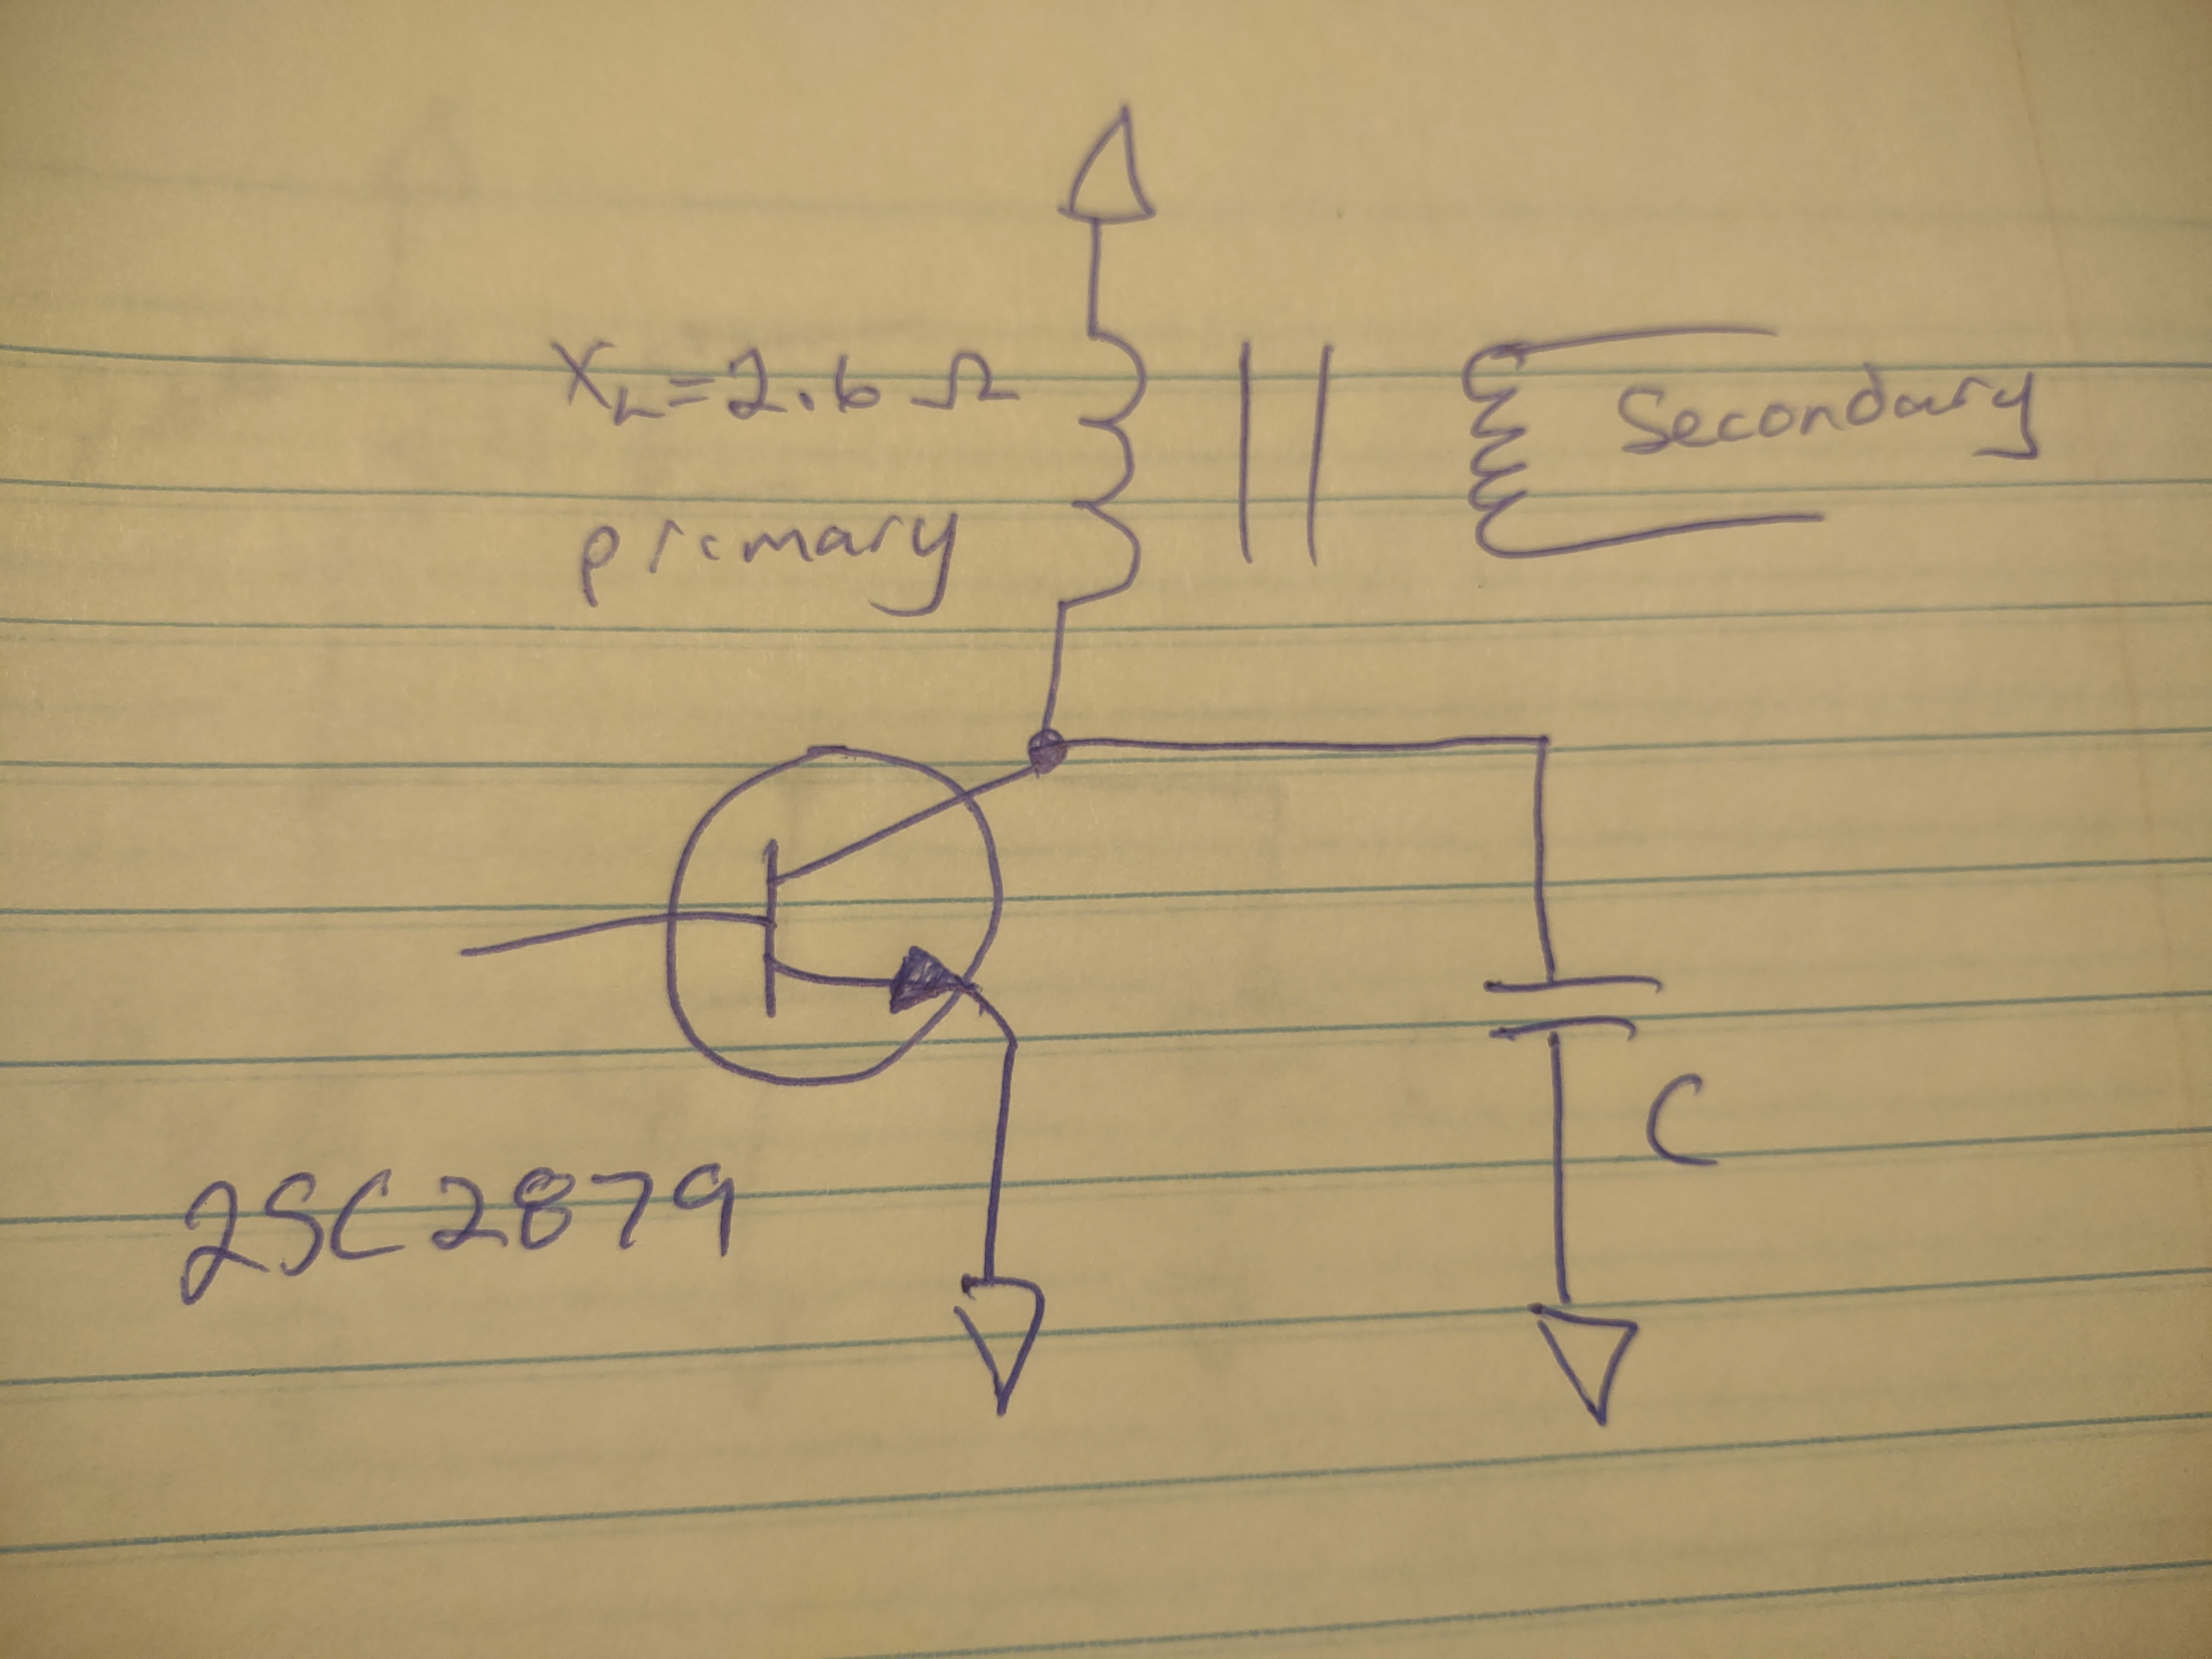 X_L=2.6 Ω
Secondary
primary
C
2SC2879